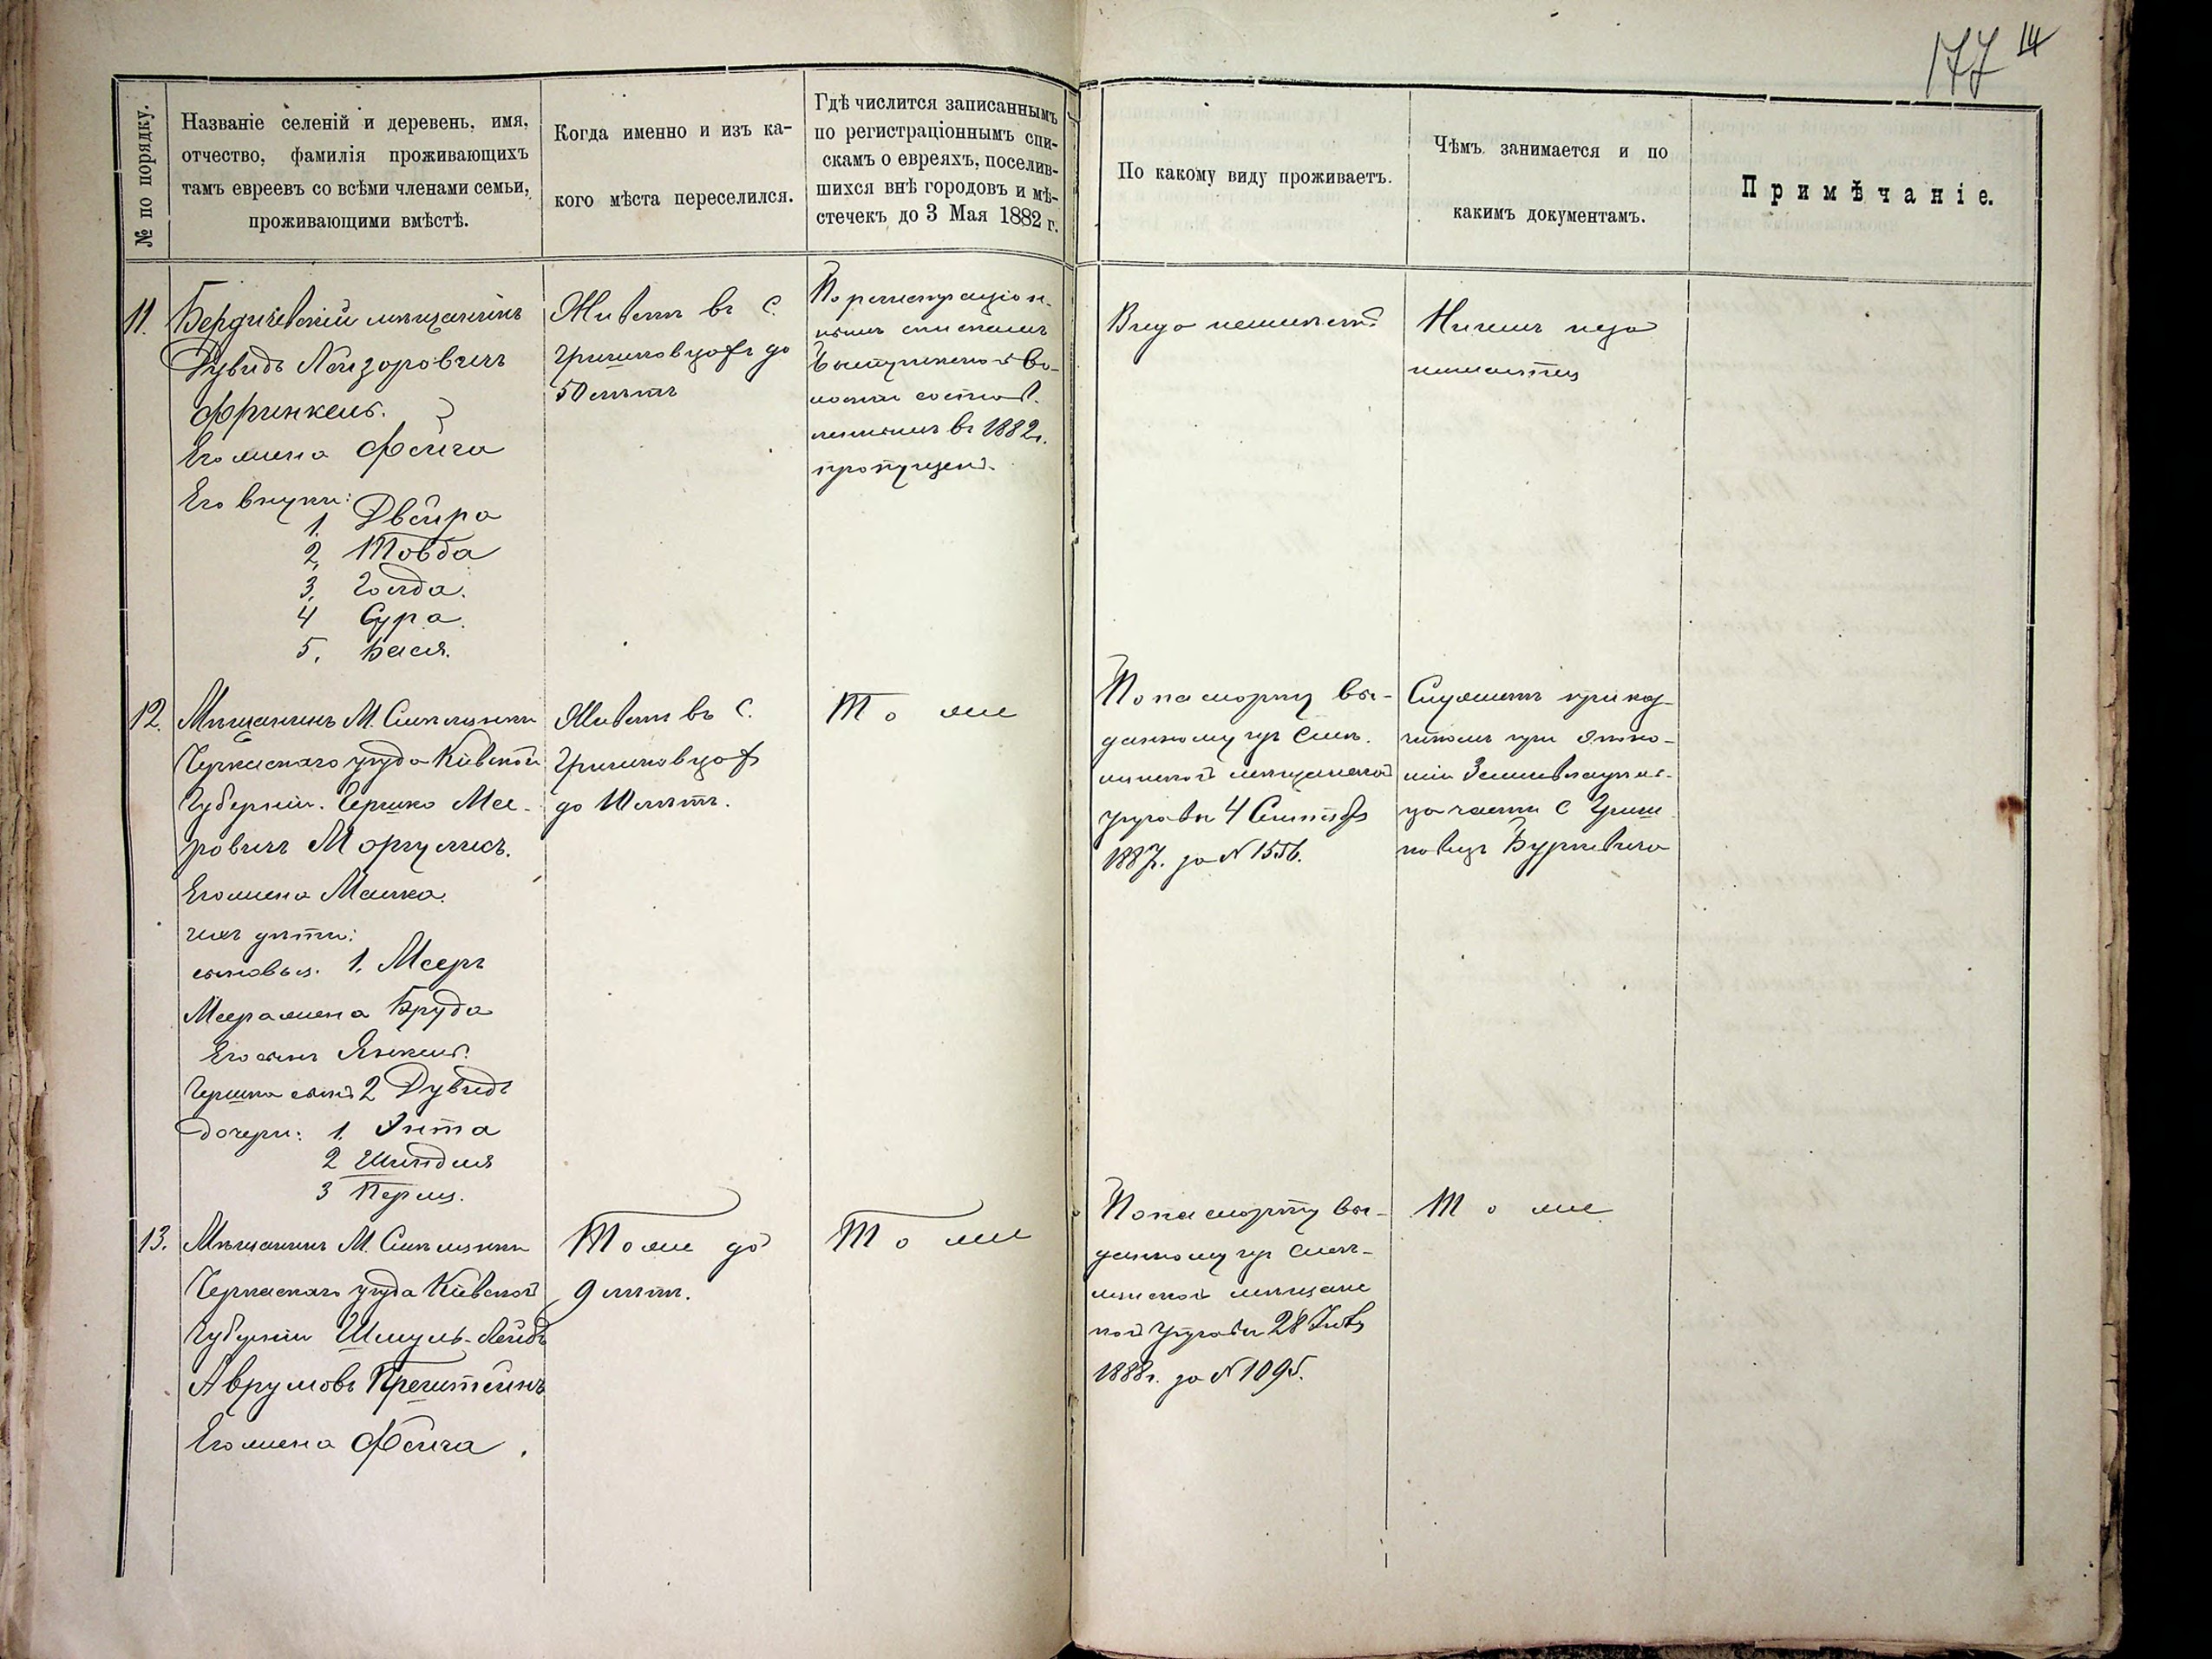 177 14
№ по порядку.
Названіе селеній и деревень, имя,
отчество, фамилія проживающихъ
тамъ евреевъ со всѣми членами семьи,
проживающими вмѣстѣ.
Когда именно и изъ ка-
кого мѣста переселился.
Гдѣ числится записаннымъ
по регистраціоннымъ спи-
скамъ о евреяхъ, поселив-
шихся внѣ городовъ и мѣ-
стечекъ до 3 Мая 1882 г.
По какому виду проживаетъ.
Чѣмъ занимается и по
какимъ документамъ.
Примѣчаніе.
11.
Бердичевскій мѣщанинъ
Дувидъ Лейзоровичъ
Френкель.
Его жена Фейга
Его внуки:
1. Двейра
2, Товба
3, Голда.
4 Сура.
5, Бася.
Живетъ въ С.
Гришковцахъ до
50 лѣтъ
По регистраціон-
нымъ спискамъ
во-
лости состав-
леннымъ въ 1882г.
пропущенъ.
Вида неимѣетъ
Ничемъ неза
нимается
12.
Мѣщанинъ М. Смѣлянки
Черкаскаго уѣзда Кіевской
Губерніи. Гершко Мее-
ровичъ Моргулисъ.
Его жена Малка.
ихъ дѣти:
сыновья. 1, Мееръ
Меера жена Бруда
Его сынъ Янкель.
Гершка сынъ 2 Дувидъ
дочери: 1, Энта
2 Шендля
3 Перля.
Живетъ въ С.
Гришковцахъ
до 10 лѣтъ.
То же
По паспорту вы-
данному изъ Смѣ-
лянской мѣщанской
управы 4 Сентября
1887. за № 1556.
Служитъ приказ-
чикомъ при эконо-
міи Землевладѣль-
ца части С Гриш
ковецъ
13.
Мѣщанинъ М. Смѣлянки
Черкаскаго уѣзда Кіевской
Губерніи Шмуль-Лейбъ
Аврумовъ
Его жена Фейга.
То же до
9 лѣтъ.
То же
По паспорту вы-
данному изъ Смѣ-
лянской мѣщанс
кой Управы 28
1888г. за № 1095.
То же